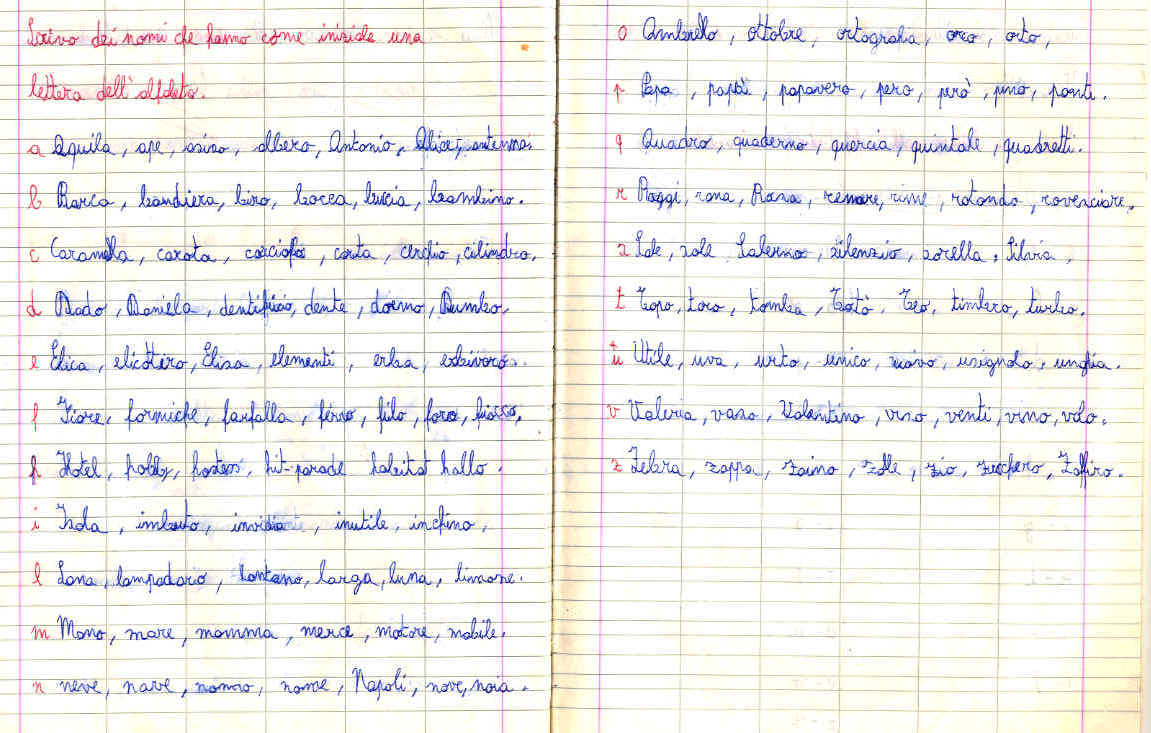 Scrivo dei nomi che hanno come iniziale una
lettera dell'alfabeto.
a Aquila, ape, asino, albero, Antonio, Alice, antenna.
b Barca, bandiera, biro, bocca, buccia, bambino.
c Caramella, carota, carciofo, carta, cerchio, cilindro.
d Dado, Daniela, dentifricio, dente, donno, Dumbo.
e Elica, elicottero, Elisa, elementi, erba, erbivoro.
f Fiore, formiche, farfalla, ferro, filo, foro, fiocco,
h Hotel, hobby, hostess, hit-parade habitat hallo.
i Isola, imbuto, invidia, inutile, inchino,
l Lana, lampadario, lontano, larga, luna, limone.
m Mano, mare, mamma, merce, motore, mobile.
n neve, nave, nonno, nome, Napoli, nove, noia.
o Ombrello, ottobre, ortografia, orto,
p Papa, papà, papavero, pero, però, pino, ponti.
q Quadro, quaderno, quercia, quintale, quadretti.
r Raggi, rana, Rosa, remare, rime, rotondo, rovesciare.
s Sole, sole Salerno, silenzio, sorella, Silvia,
t Topo, toro, tomba, Totò, Teo, timbro, turbo.
u Utile, uva, urto, unico, uovo, usignolo, unghia.
v Valeria, vaso, Valentino, viso, venti, vino, volo.
z Zebra, zappa, zaino, zolle, zio, zucchero, Zaffiro.